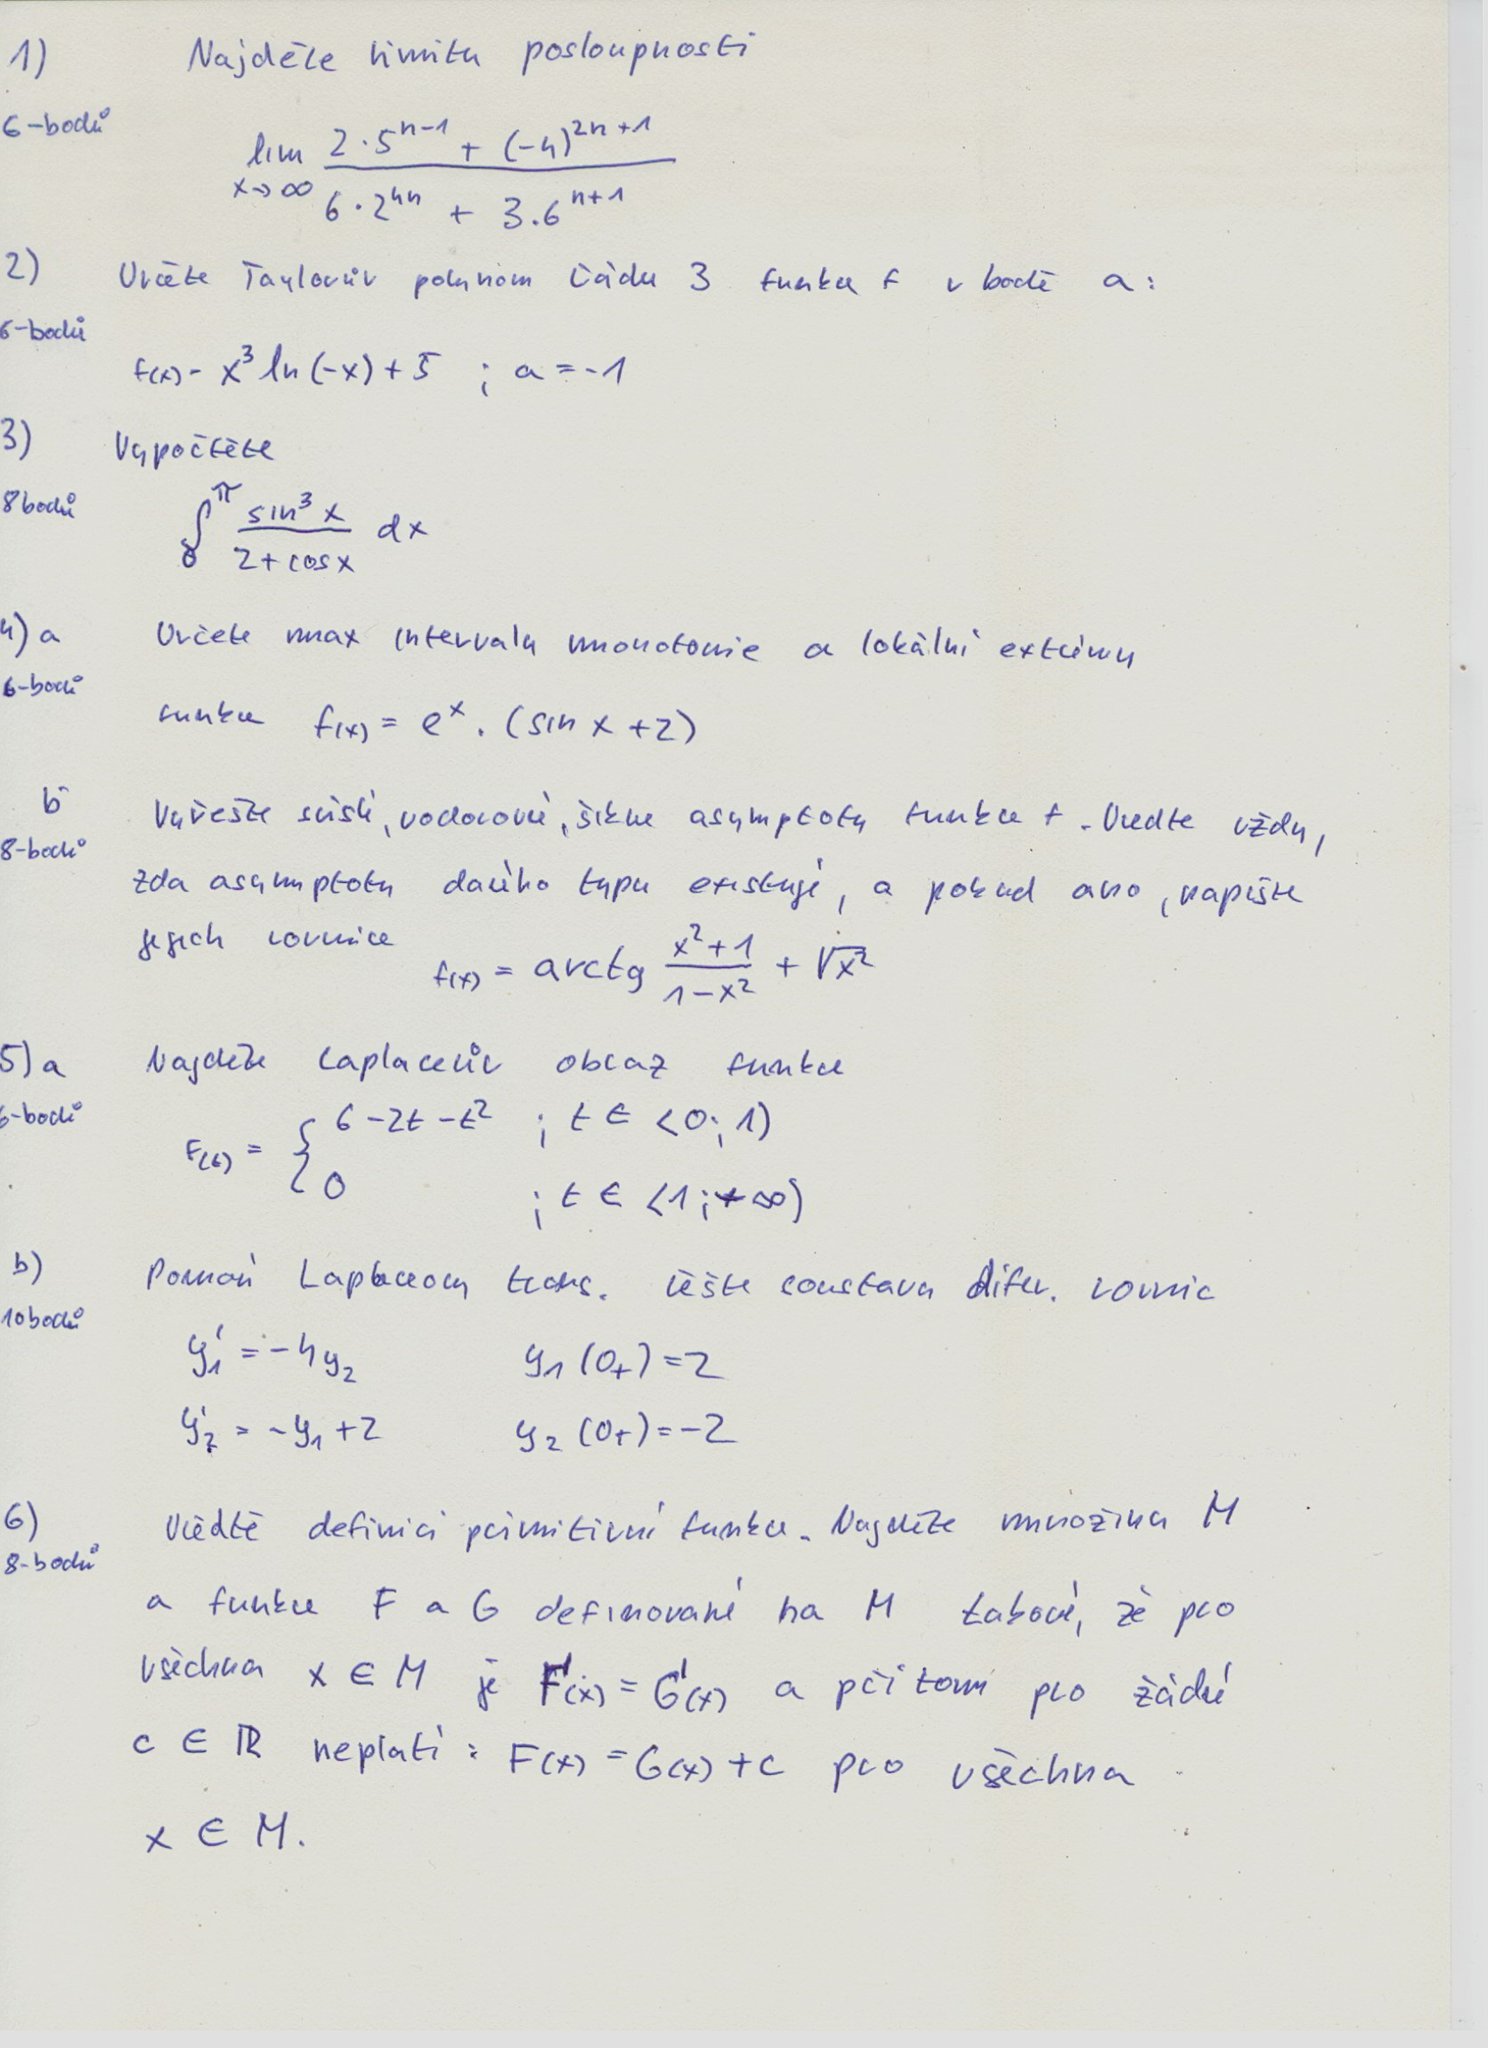 1) Najděte limitu posloupnosti
6-bodů
lim x→∞ (2·5^(n-1) + (-4)^(2n+1)) / (6·2^(4n) + 3.6^(n+1))
2) Určete Taylorův polynom řádu 3 funkce f v bodě a:
6-bodů
f(x) - x³ ln(-x) + 5 ; a = -1
3) Vypočtěte
8 bodů
∫₀^π sin³x / (2+cosx) dx
4) a Určete max intervaly monotonie a lokální extrémy
6-bodů
funkce f(x) = e^x . (sin x + 2)
b Vyřešte svislé, vodorovné, šikmé asymptoty funkce f. Uveďte vždy,
8-bodů
zda asymptoty daného typu existují, a pokud ano, napište
jejich rovnice
f(x) = arctg (x²+1)/(1-x²) + √x²
5) a Najděte Laplaceův obraz funkce
6-bodů
F(t) = { 6-2t-t² ; t ∈ <0;1)
0 ; t ∈ <1;+∞)
b) Pomocí Laplaceovy trans. řešte soustavu difer. rovnic
10 bodů
y₁' = -4y₂ y₁(0₊) = 2
y₂' = -y₁+2 y₂(0₊) = -2
6) Uveďtě definici primitivní funkce. Najděte množinu M
8-bodů
a funkce F a G definované na M takové, že pro
všechna x ∈ M je F'(x) = G'(x) a přitom pro žádné
c ∈ ℝ neplatí : F(x) = G(x) + c pro všechna
x ∈ M.